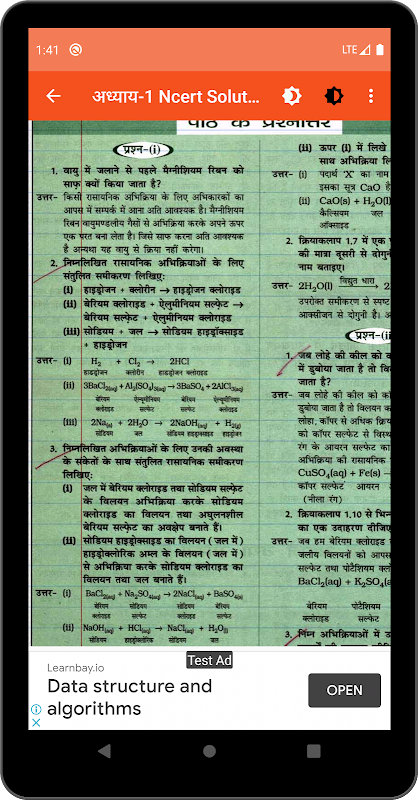 1:41
LTE
अध्याय-1 Ncert Solut...
पाठ के प्रश्नोत्तर
प्रश्न-(i)
1. वायु में जलाने से पहले मैग्नीशियम रिबन को
साफ़ क्यों किया जाता है?
उत्तर- किसी रासायनिक अभिक्रिया के लिए अभिकारकों का
आपस में सम्पर्क में आना अति आवश्यक है। मैग्नीशियम
रिबन वायुमण्डलीय गैसों से अभिक्रिया करके अपने ऊपर
एक परत बना लेता है। जिसे साफ करना अति आवश्यक
है अन्यथा यह वायु से क्रिया नहीं करेगा।
2. निम्नलिखित रासायनिक अभिक्रियाओं के लिए
संतुलित समीकरण लिखिए:
(i) हाइड्रोजन + क्लोरीन → हाइड्रोजन क्लोराइड
(ii) बेरियम क्लोराइड + ऐलुमीनियम सल्फेट →
बेरियम सल्फेट + ऐलुमीनियम क्लोराइड
(iii) सोडियम + जल → सोडियम हाइड्रॉक्साइड
+ हाइड्रोजन
उत्तर- (i) H2 + Cl2 → 2HCl
हाइड्रोजन क्लोरीन हाइड्रोजन क्लोराइड
(ii) 3BaCl2(aq) + Al2(SO4)3(aq) → 3BaSO4 + 2AlCl3(aq)
बेरियम ऐल्युमीनियम बेरियम ऐल्युमीनियम
क्लोराइड सल्फेट सल्फेट क्लोराइड
(iii) 2Na(s) + 2H2O → 2NaOH(aq) + H2(g)
सोडियम जल सोडियम हाइड्रॉक्साइड हाइड्रोजन
3. निम्नलिखित अभिक्रियाओं के लिए उनकी अवस्था
के संकेतों के साथ संतुलित रासायनिक समीकरण
लिखिए:
(i) जल में बेरियम क्लोराइड तथा सोडियम सल्फ़ेट
के विलयन अभिक्रिया करके सोडियम
क्लोराइड का विलयन तथा अघुलनशील
बेरियम सल्फ़ेट का अवक्षेप बनाते हैं।
(ii) सोडियम हाइड्रोक्साइड का विलयन ( जल में )
हाइड्रोक्लोरिक अम्ल के विलयन ( जल में )
से अभिक्रिया करके सोडियम क्लोराइड का
विलयन तथा जल बनाते हैं।
उत्तर- (i) BaCl2(aq) + Na2SO4(aq) → 2NaCl(aq) + BaSO4(s)
बेरियम सोडियम सोडियम बेरियम
क्लोराइड सल्फेट क्लोराइड सल्फेट
(ii) NaOH(aq) + HCl(aq) → NaCl(aq) + H2O(l)
सोडियम हाइड्रोक्लोरिक सोडियम जल
(ii) ऊपर (i) में लिखे
साथ अभिक्रिया लि
उत्तर- (i) पदार्थ 'X' का नाम
इसका सूत्र CaO है
(ii) CaO(s) + H2O(l)
कैल्सियम जल
ऑक्साइड
2. क्रियाकलाप 1.7 में एक
की मात्रा दूसरी से दोगुन
नाम बताइए।
उत्तर- 2H2O(l) विद्युत धारा → 2
उपरोक्त समीकरण से स्पष्ट
आक्सीजन से दोगुनी है।
प्रश्न-(ii
1. जब लोहे की कील को क
में डुबोया जाता है तो वि
जाता है?
उत्तर- जब लोहे की कील को कॉ
डुबोया जाता है तो विलयन क
लोहा, कॉपर से अधिक क्रिय
को कॉपर सल्फेट से विस्थ
रंग के आयरन सल्फेट का
अभिक्रिया की रासायनिक
CuSO4(aq) + Fe(s) —
कॉपर सल्फेट आयरन
(नीला रंग)
2. क्रियाकलाप 1.10 से भिन्
का एक उदाहरण दीजिए
उत्तर- जब हम बेरियम क्लोराइड
जलीय विलयनों को आपस
सल्फेट तथा पोटैशियम क्लो
BaCl2(aq) + K2SO4(a
बेरियम पोटैशियम
क्लोराइड सल्फेट
3. निम्न अभिक्रियाओं में उ
Test Ad
Learnbay.io
Data structure and
algorithms
OPEN